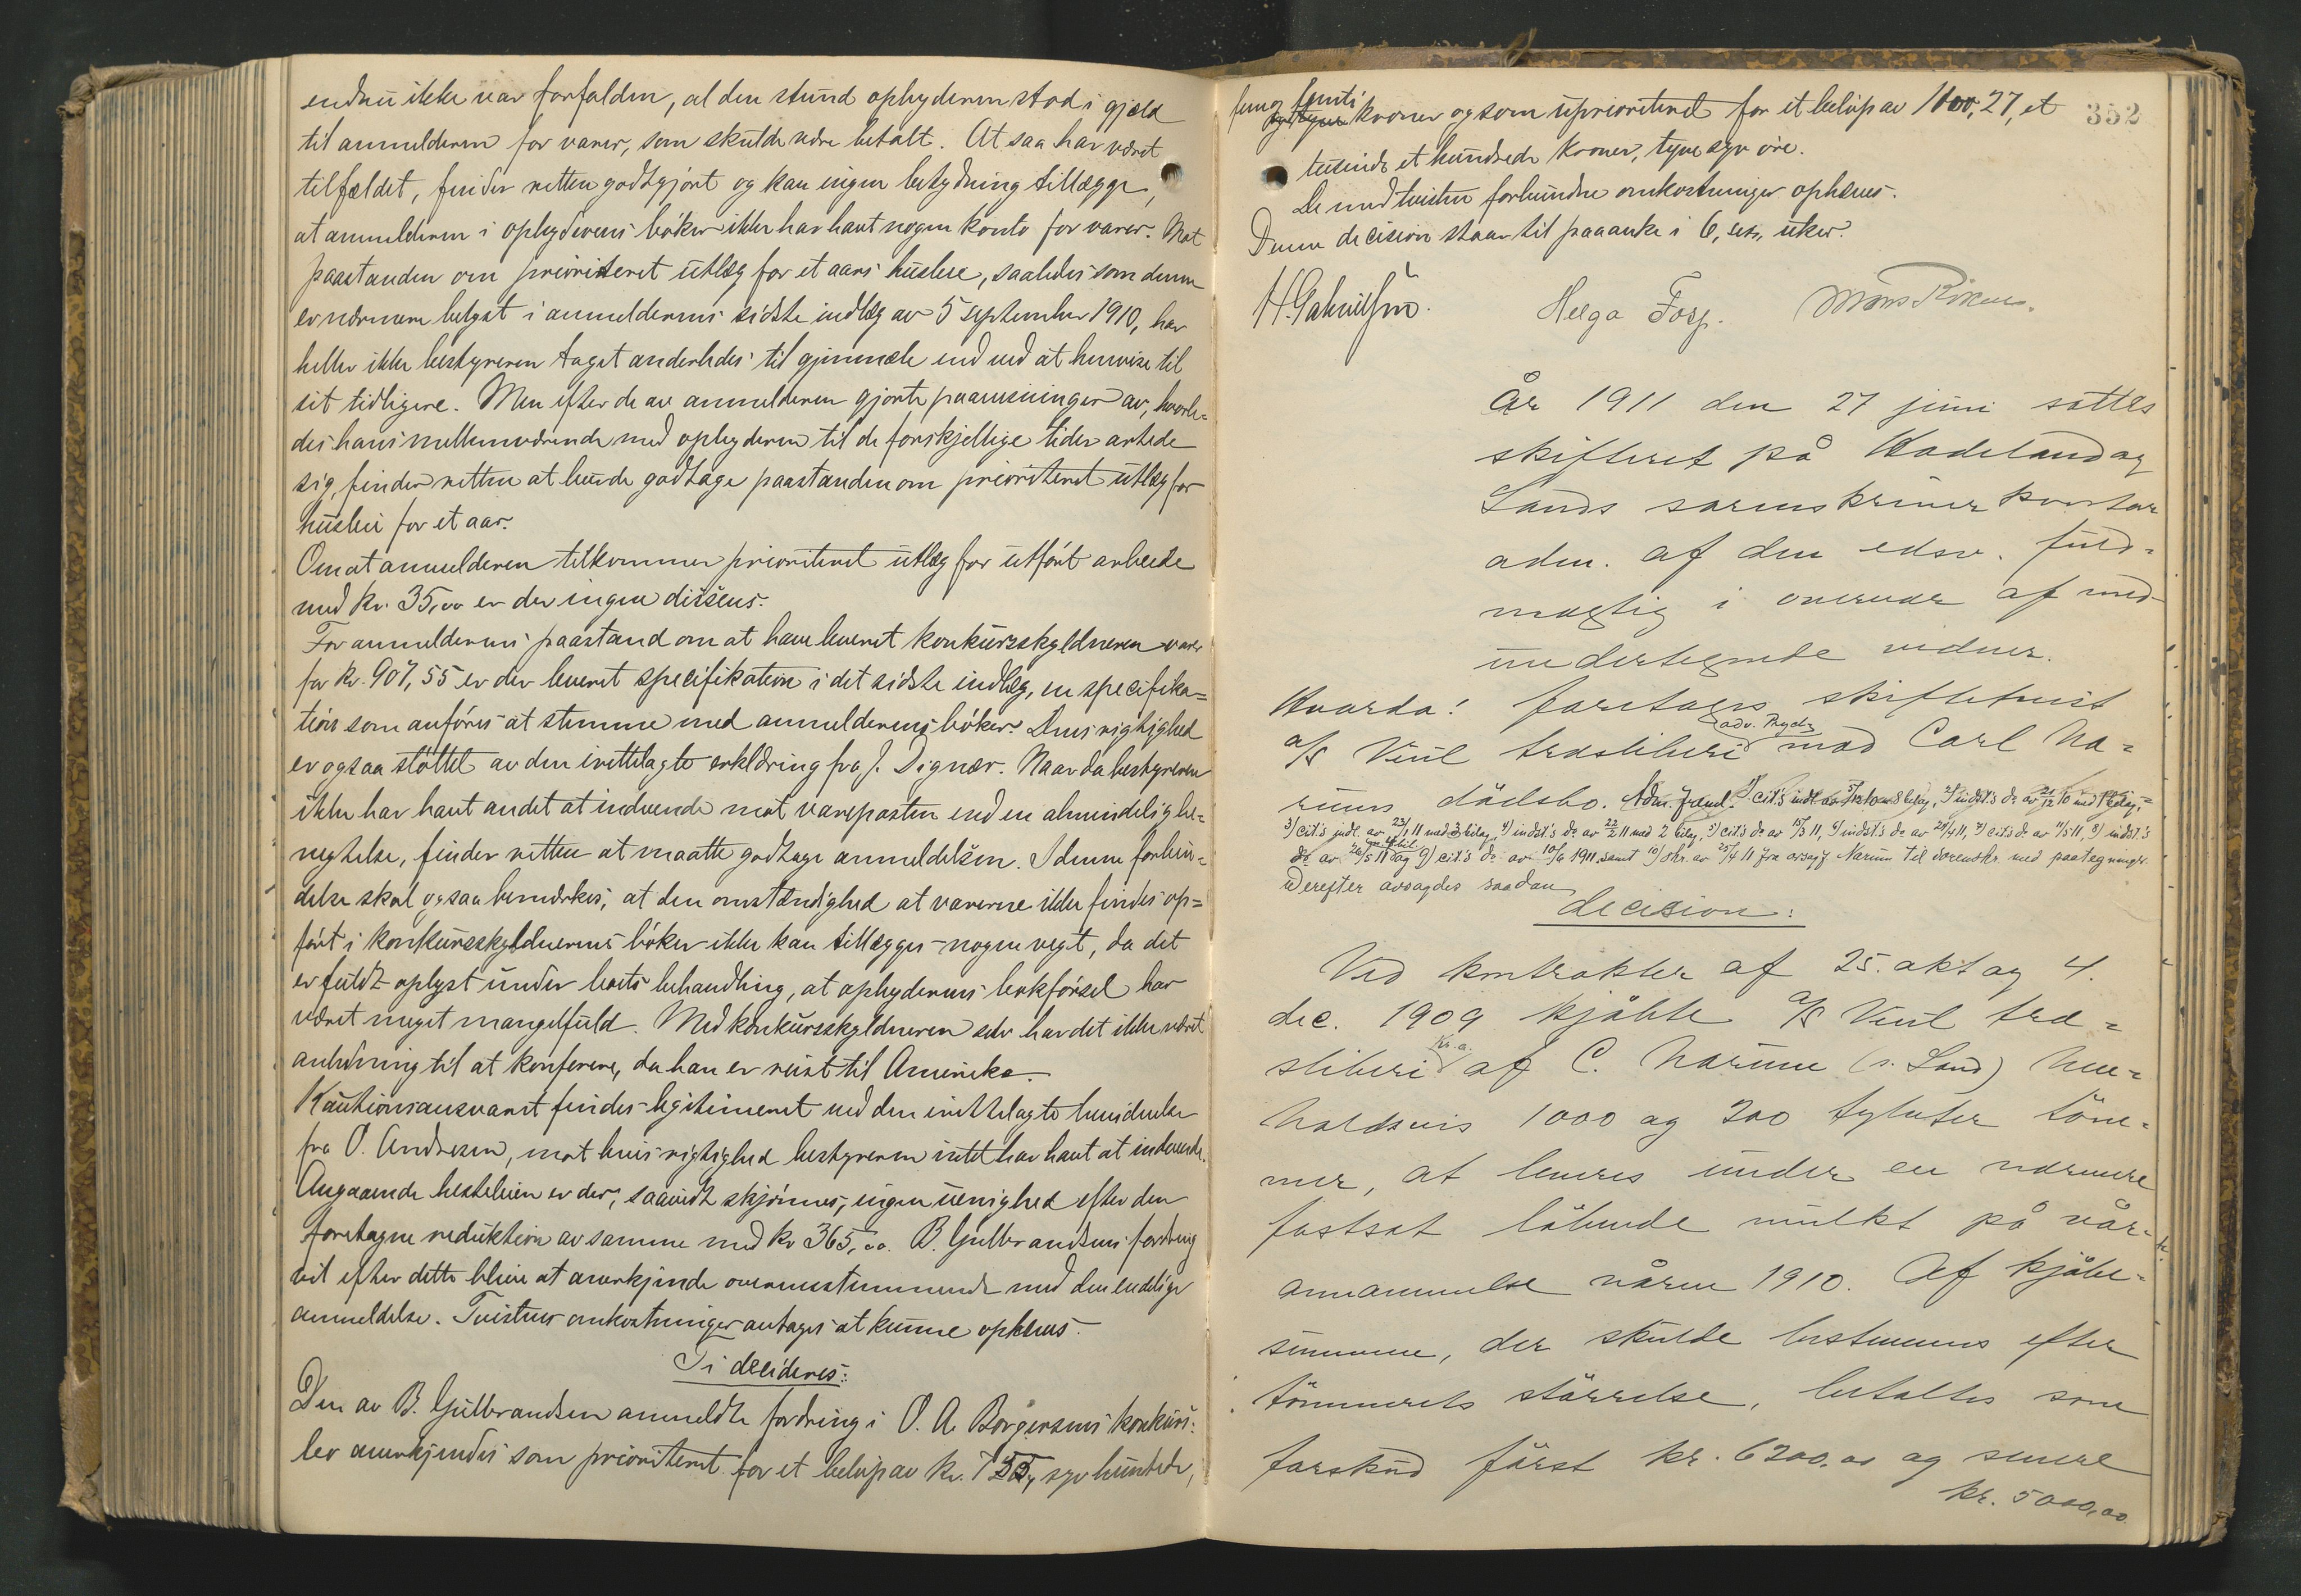 endnu ikke var forfalden, al den stund opbyderen stod i gjæld
til anmelderen for varer, som skulde være betalt. At saa har været
tilfældet, finder retten godtgjort og kan ingen betydning tillægge,
at anmelderen i opbyderens bøker ikke har havt nogen konto for varer. Mot
paastanden om prioriteret utlæg for et aars husleie, saaledes som denne
er nærmere belyst i anmelderens sidste indlæg av 5 september 1910, har
heller ikke bestyreren taget anderledes til gjenmæle end ved at henvise til
sit tidligere. Men efter de av anmelderen gjorte paavisninger av, hvorle=
des hans mellemværende med opbyderen til de forskjellige tider artede
sig, finder retten at burde godtage paastanden om prioriteret utlæg for
husleie for et aar.
Om at anmelderen tilkommer prioriteret utlæg for utført arbeide
med kr. 35,00 er der ingen dissens.
For anmelderens paastand om at have leveret konkursskyldneren varer
for kr. 907,55 er der leveret specifikation i det sidste indlæg, en specifika=
tion som anføres at stemme med anmelderens bøker. Dens rigtighed
er ogsaa støttet av den irettelagte erklæring fra J. Dignær. Naar da bestyreren
ikke har havt andet at indvende mot vareposten end en almindelig be=
negtelse, finder retten at maatte godtage anmeldelsen. I denne forbin=
delse skal ogsaa bemærkes, at den omstændighed at varerne ikke findes op=
ført i konkursskyldnerens bøker ikke kan tillægges nogen vegt, da det
er fuldt oplyst under boets behandling, at opbyderens bokførsel har
været meget mangelfuld. Med konkursskyldneren selv har det ikke været
anledning til at konferere, da han er reist til Amerika.
Kautionsansvaret findes legitimeret ved den irettelagte bevidnelse
fra O. Andresen, mot hvis rigtighed bestyreren intet har havt at indvende.
Angaaende hesteleien er der, saavidt skjønnes, ingen uenighed efter den
foretagne reduktion av samme med kr 365,00. B. Gulbrandsens fordring
vil efter dette blive at anerkjende overensstemmende med den endelige
anmeldelse. Tvistens omkostninger antages at kunne ophæves.
Ti decideres:
Den av B. Gulbrandsen anmeldte fordring i O. A. Borgersens konkurs=
bo anerkjendes som prioriteret for et beløp av kr. 755, syv hundrede,
352
fem og femti kroner og som uprioriteret for et beløp av 1100,27, et
tusinde et hundrede kroner, tyve syv øre.
De med tvisten forbundne omkostninger ophæves.
Denne decision staar til paaanke i 6, sex, uker.
H. Gabrielsen. Helga Fosp.
År 1911 den 27 juni sattes
skifteret på Hadeland og
Lands sorenskriverkontor
adm. af den edsv. fuld=
mægtig i overvær af med
undertegnede vidner.
Hvorda: foretoges skiftetvist
a/s Viul træsliberi adv. Ryd mod Carl Na=
rums dødsbo. Adm. freml. 1) cit.s indl. av med 8 bilag, 2) indst.s do av 21/12 10 med 1 bilag,
3) cit.s indl. av 23/1 11 med 3 bilag, 4) indst.s do av 22/2 11 med 2 bilag, 5) cit.s do av 15/3 11, 6) indst.s do av 24/4 11, 7) cit.s do av 4/5 11, 8) indst.s
do av 26/5 11 og 9) cit.s do av 10/6 1911 samt 10) skr. av 25/4 11 fra Narum til sorenskr. med paategninger.
Derefter avsagdes saadan
decision:
Ved kontrakter af 25. okt og 4.
dec. 1909 kjøbte a/s Viul træ=
sliberi kr.a. af C. Narum (s. Land) hen=
holdsvis 1000 og 200 tylvter tøm=
mer, at leveres under en nærmere
fastsat løbende mulkt på vår-
annammelse våren 1910. Af kjøbe-
summen, der skulde bestemmes efter
tømmerets størrelse, betaltes som
forskud først kr. 6200.00 og senere
kr. 5000,00